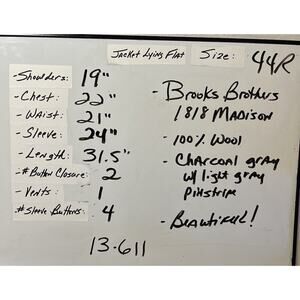 Jacket Lying Flat
Size: 44R
- Shoulders: 19"
- Chest: 22"
- Waist: 21"
- Sleeve: 24"
- Length: 31.5"
- # Button Closure: 2
- Vents: 1
# Sleeve Buttons: 4
- Brooks Brothers
1818 Madison
- 100% Wool
- Charcoal gray
w/ light gray
Pinstripe
- Beautiful!
13-611